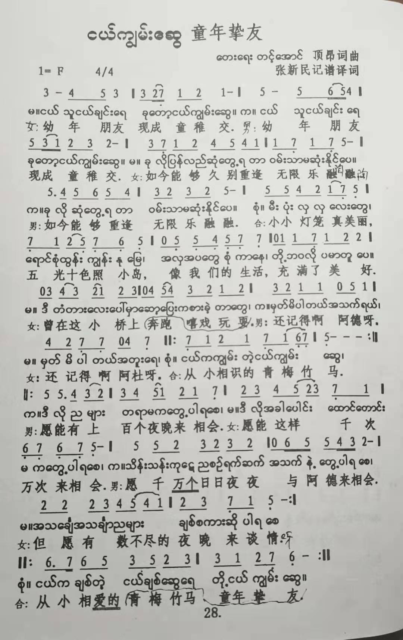 ငယ်ကျွမ်းဆွေ 童年挚友
တေးရေး တင့်အောင် 顶昂词曲
1= F 4/4 张新民记谱译词
3 - 4 5 3 | 3 27 1 2 1 - | 5 - 5 6 54 |
မ။ငယ် သူငယ်ချင်းရေ ခုတော့ငယ်ကျွမ်းဆွေ။ က။ ငယ် သူငယ်ချင်း ရေ
女: 幼 年 朋友 现成 童 稚 交. 男: 幼 年 朋友
5 31 2 3 2 - | 3 71 2 4 5 4 | 1 7 1 7 5 - |
ခုတော့ငယ်ကျွမ်းဆွေ။ မ။ ခု လိုပြန်လည်ဆုံတွေ့ရ တာ ဝမ်းသာမဆုံးနိုင်ပေ။
现成 童 稚 交. 女: 如今能 够 久 别 重逢 无限 乐 融融
5. 4 5 6 5 4 | 2 2 1 2 5 - | 5 5 4 2 1 7 5 |
က။ခု လို ဆုံတွေ့ရ တာ ဝမ်းသာမဆုံးနိုင်ပေ။ စုံ။ မီး ပုံး လှ လှ လေးတွေ၊
男: 如今能 够 重逢 无限 乐 融融. 合: 小小 灯笼 真美丽,
7 1 2 5 7 6 5 | 0 5 5 4 5 7 7 | 01 1 7 1 2 2 |
ရောင်စုံထွန်း ကျွန်း နု မြေ၊ အလှအပတွေ စုံ ကာနေ၊ တို့ဘဝလို ပမာတူ ပေ။
五 光十色照 小岛, 像 我 们的 生活, 充 满了 美 好.
03 4 3 21 2 3 | 04 54 3 2 1 2 | 1 2 1 1 0 5 1 |
မ။ ဒီ တံတားလေးပေါ်မှာဆော့ပြေးကစားခဲ့ တာတွေ၊ က။မှတ်မိပါတယ်အသက်ရယ်၊
女: 曾在这 小 桥上 奔跑 嬉戏 玩 耍, 男: 还记得啊 阿德呀,
4 2 7 7 04 7 | 1 1 1 2 3 4 2 | 1 7 6 7 1 | 5 - - - :|
မ။ မှတ် မိ ပါ တယ်အတူးရေ၊ စုံ။ ငယ်ကကျွမ်း တဲ့ငယ်ကျွမ်း ဆွေ၊
女: 还 记得 啊 阿杜呀, 合: 从小相识 的 青 梅 竹 马.
က။ဒီ လို ည များ တရာမကတွေ့ပါရစေ၊ မ။ဒီ လိုအခါပေါင်း ထောင်သောင်း
男: 愿能有 上 百个夜晚来 相会. 女: 愿能 这样 千 次
6 7 6 7 5 - | 5 5 2 3 2 3 2 | 0 6 5 5 4 3 2 - |
မ ကတွေ့ပါရစေ၊ က။သိန်းသန်းကုဋေ ညစဉ်ရက်ဆက် အသက် နဲ့ တွေ့ပါရ စေ၊
万次 来相 会. 男: 愿 千 万个日日夜夜 与 阿德来相会.
2 2 2 3 4 5 4 1 | 2 3 7 1 5 - :|
မ။အသချေ်အသချာ်ညများ ချစ်စကားဆို ပါရ စေ
女: 但 愿有 数不尽的 夜 晚 来 谈 情
||: 6. 7 6 5 3 5 2 3 | 3 1 2 7 6 - :||
စုံ။ ငယ်က ချစ်တဲ့ ငယ်ချစ်ဆွေရေ တို့ငယ် ကျွမ်း ဆွေ။
合: 从 小 相爱的 青 梅竹马 童年 挚 友.
28.